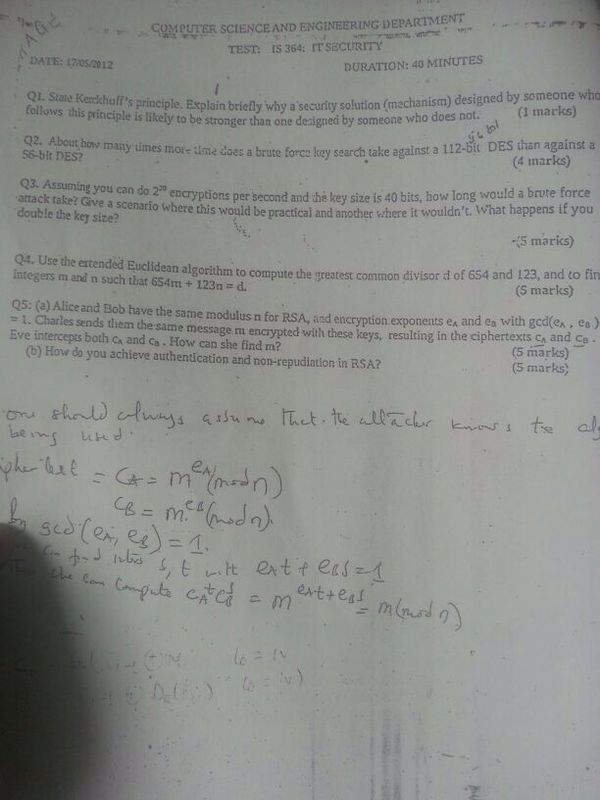 COMPUTER SCIENCE AND ENGINEERING DEPARTMENT
TEST: IS 364: IT SECURITY
DATE: 17/05/2012
DURATION: 40 MINUTES
Q1. State Kerckhoff's principle. Explain briefly why a security solution (mechanism) designed by someone who
follows this principle is likely to be stronger than one designed by someone who does not. (1 marks)
Q2. About how many times more time does a brute force key search take against a 112-bit DES than against a
56-bit DES? (4 marks)
Q3. Assuming you can do 2²⁰ encryptions per second and the key size is 40 bits, how long would a brute force
attack take? Give a scenario where this would be practical and another where it wouldn't. What happens if you
double the key size? (5 marks)
Q4. Use the extended Euclidean algorithm to compute the greatest common divisor d of 654 and 123, and to fin
integers m and n such that 654m + 123n = d. (5 marks)
Q5: (a) Alice and Bob have the same modulus n for RSA, and encryption exponents eA and eB with gcd(eA , eB )
= 1. Charles sends them the same message m encrypted with these keys, resulting in the ciphertexts cA and cB .
Eve intercepts both cA and cB . How can she find m? (5 marks)
(b) How do you achieve authentication and non-repudiation in RSA? (5 marks)
one should always assume that the attacker knows the alg
being used.
= CA = m^eA (mod n)
CB = m^eB (mod n).
gcd (eA, eB) = 1.
can find s, t with eAt + eBs = 1
she can compute CA^t CB^s = m^eAt+eBs
= m (mod n)